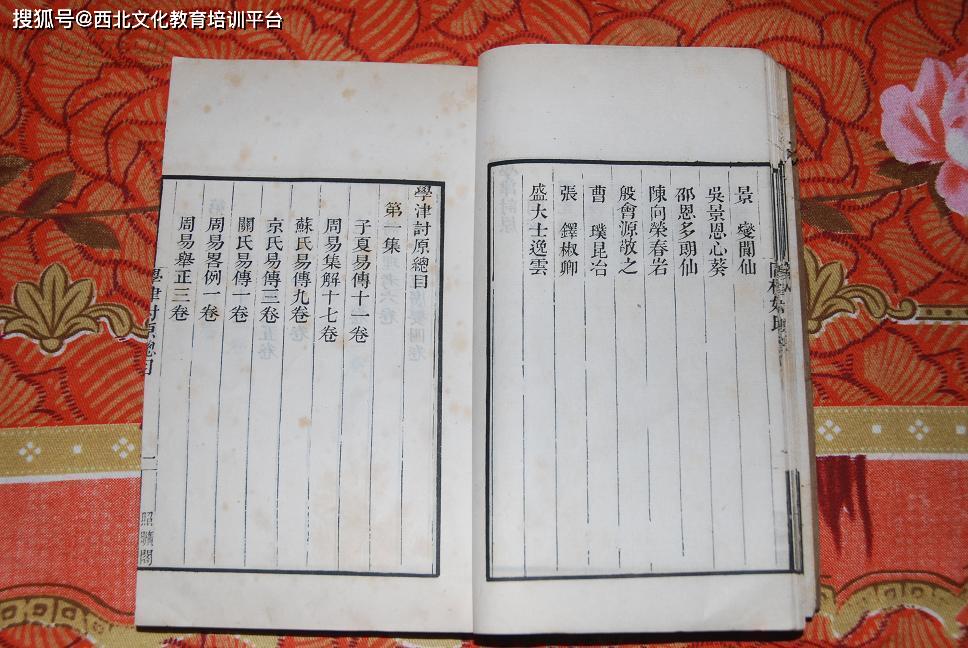 搜狐号@西北文化教育培训平台
同校姓氏
景 燮
吳景恩心葵
邵恩多朗仙
陳向榮春
殷會源敬之
曹 璞昆冶
張 鐸椒卿
盛大士逸雲
學津討原總目
第一集
子夏易傳十一卷
周易集解十七卷
蘇氏易傳九卷
京氏易傳三卷
關氏易傳一卷
周易畧例一卷
周易舉正三卷
學津討原總目
二
照曠閣